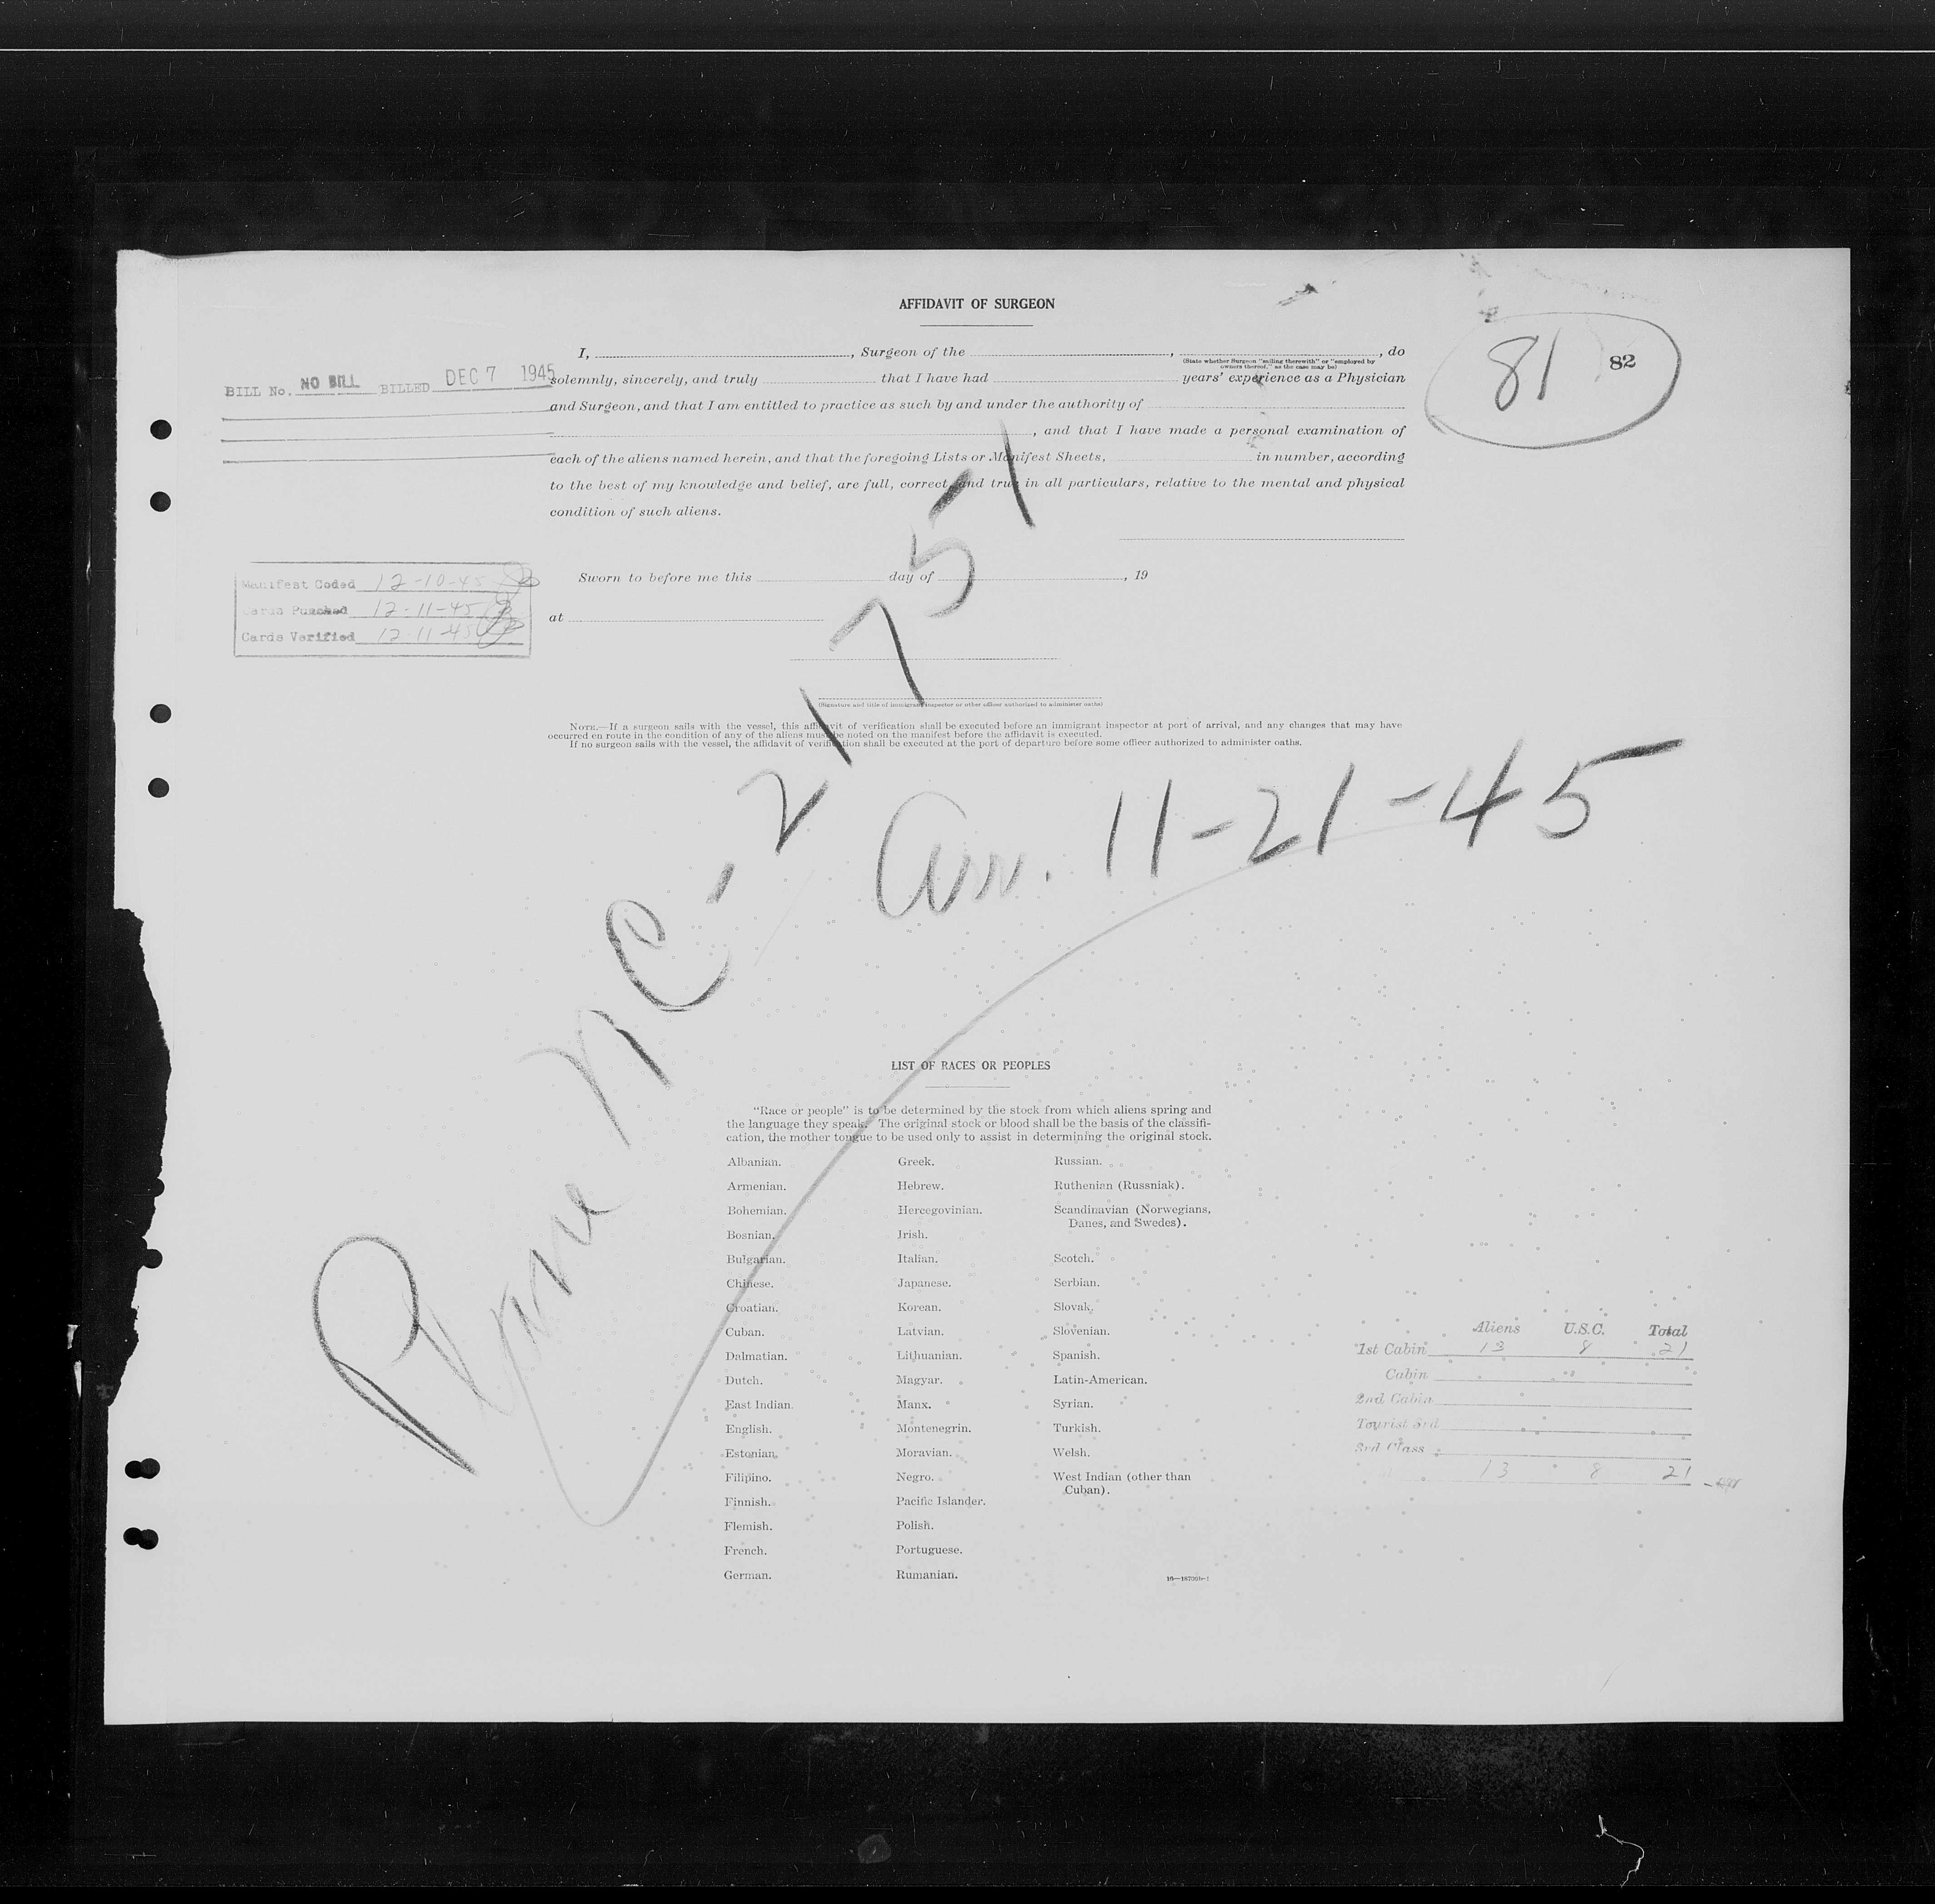 AFFIDAVIT OF SURGEON
81 82
I, , Surgeon of the , , do
(State whether Surgeon "sailing therewith" or "employed by
owners thereof," as the case may be)
BILL No. NO BILL BILLED DEC 7 1945
solemnly, sincerely, and truly that I have had years' experience as a Physician
and Surgeon, and that I am entitled to practice as such by and under the authority of
, and that I have made a personal examination of
each of the aliens named herein, and that the foregoing Lists or Manifest Sheets, in number, according
to the best of my knowledge and belief, are full, correct, and true in all particulars, relative to the mental and physical
condition of such aliens.
Manifest Coded 12-10-45
Cards Punched 12-11-45
Cards Verified 12-11-45
Sworn to before me this day of , 19
at
(Signature and title of immigrant inspector or other officer authorized to administer oaths)
NOTE.—If a surgeon sails with the vessel, this affidavit of verification shall be executed before an immigrant inspector at port of arrival, and any changes that may have
occurred en route in the condition of any of the aliens must be noted on the manifest before the affidavit is executed.
If no surgeon sails with the vessel, the affidavit of verification shall be executed at the port of departure before some officer authorized to administer oaths.
Plane NC-21751
Arr. 11-21-45
LIST OF RACES OR PEOPLES
"Race or people" is to be determined by the stock from which aliens spring and
the language they speak. The original stock or blood shall be the basis of the classifi-
cation, the mother tongue to be used only to assist in determining the original stock.
Albanian.
Armenian.
Bohemian.
Bosnian.
Bulgarian.
Chinese.
Croatian.
Cuban.
Dalmatian.
Dutch.
East Indian.
English.
Estonian.
Filipino.
Finnish.
Flemish.
French.
German.
Greek.
Hebrew.
Hercegovinian.
Irish.
Italian.
Japanese.
Korean.
Latvian.
Lithuanian.
Magyar.
Manx.
Montenegrin.
Moravian.
Negro.
Pacific Islander.
Polish.
Portuguese.
Rumanian.
Russian.
Ruthenian (Russniak).
Scandinavian (Norwegians,
Danes, and Swedes).
Scotch.
Serbian.
Slovak.
Slovenian.
Spanish.
Latin-American.
Syrian.
Turkish.
Welsh.
West Indian (other than
Cuban).
Aliens U.S.C. Total
1st Cabin 13 8 21
Cabin
2nd Cabin
Tourist 3rd
3rd Class
13 8 21